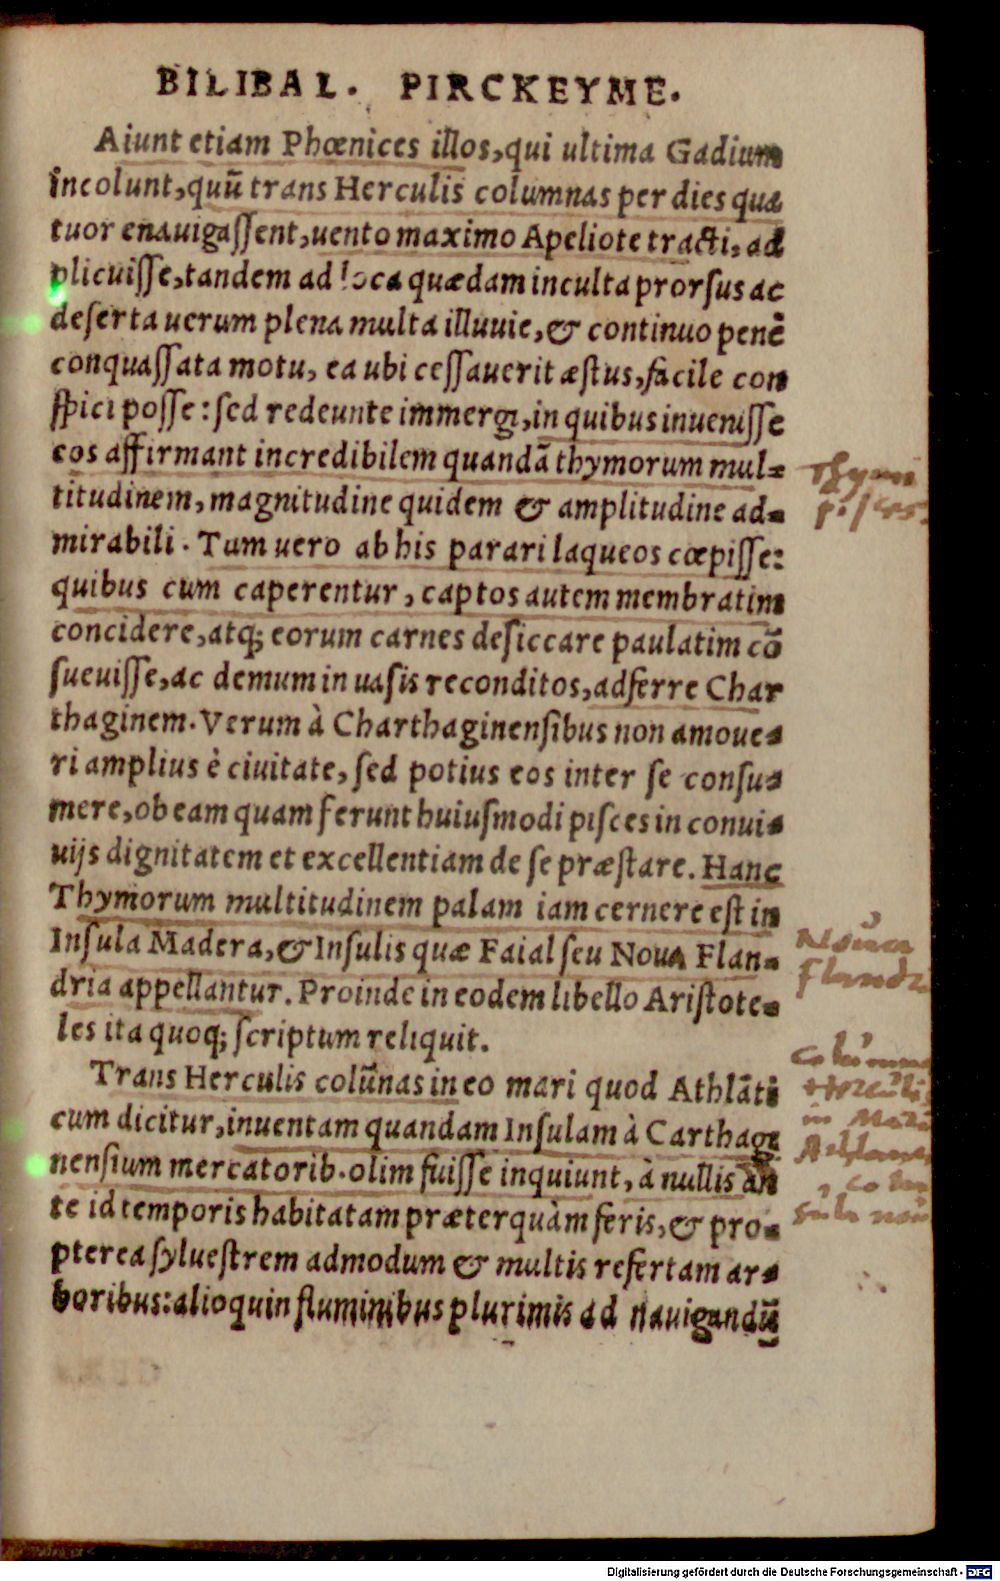 BILIBAL. PIRCKEYME.
Aiunt etiam Phœnices illos, qui ultima Gadium
incolunt, quũ trans Herculis columnas per dies qua
tuor enauigaſſent, uento maximo Apeliote tracti, ad
plicuiſſe, tandem ad loca quædam inculta prorſus ac
deſerta uerum plena multa illuuie, & continuo penè
conquaſſata motu, ea ubi ceſſauerit æſtus, facile con
ſpici poſſe: ſed redeunte immergi, in quibus inueniſſe
eos affirmant incredibilem quandã thymorum mul=
titudinem, magnitudine quidem & amplitudine ad=
mirabili. Tum uero ab his parari laqueos cœpiſſe:
quibus cum caperentur, captos autem membratim
concidere, atq; eorum carnes deſiccare paulatim cõ
ſueuiſſe, ac demum in uaſis reconditos, adferre Char
thaginem. Verum à Charthaginenſibus non amoue=
ri amplius è ciuitate, ſed potius eos inter ſe conſu=
mere, ob eam quam ferunt huiuſmodi piſces in conui=
uijs dignitatem et excellentiam de ſe præſtare. Hanc
Thymorum multitudinem palam iam cernere eſt in
Inſula Madera, & Inſulis quæ Faial ſeu Noua Flan=
dria appellantur. Proinde in eodem libello Ariſtote=
les ita quoq; ſcriptum reliquit.
Trans Herculis colũnas in eo mari quod Athlãti
cum dicitur, inuentam quandam Inſulam à Carthagi
nenſium mercatorib. olim fuiſſe inquiunt, à nullis an
te id temporis habitatam præterquàm feris, & pro=
pterea ſylueſtrem admodum & multis refertam ar=
boribus: alioquin fluminibus plurimis ad nauigandũ
Thymi
piſces.
Noua
Flandri
Columna
Herculis
in Mari
Digitalisierung gefördert durch die Deutsche Forschungsgemeinschaft - DFG